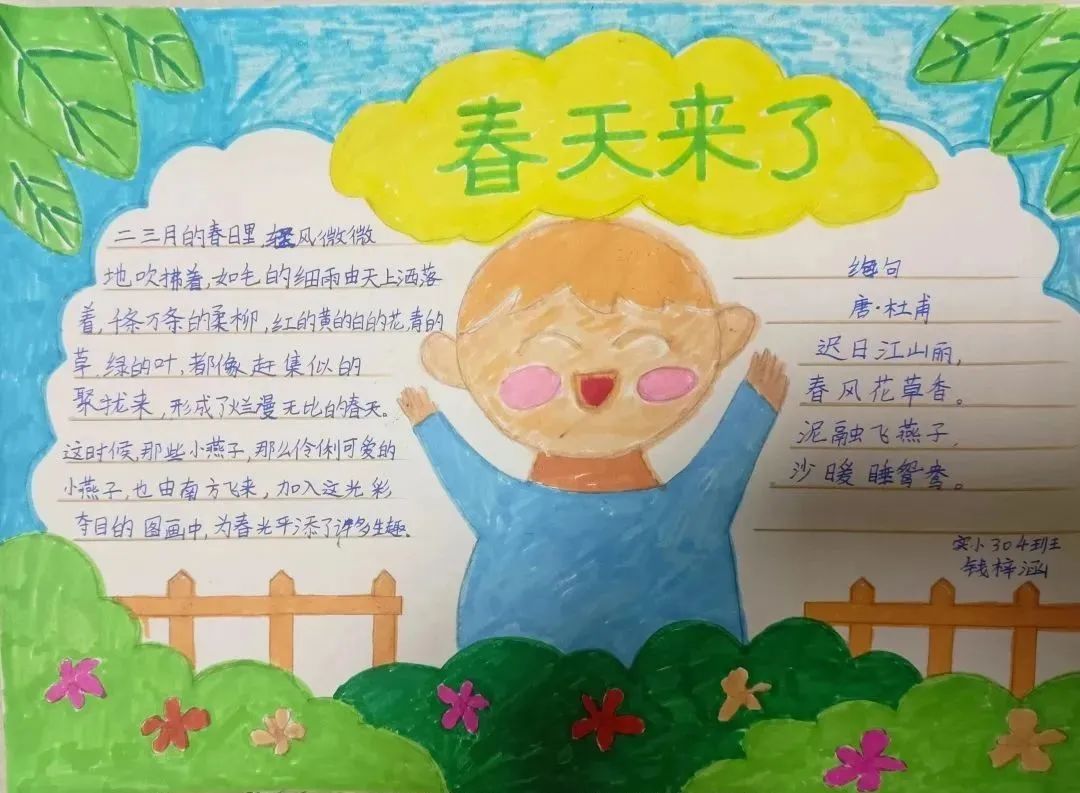 春天来了
二三月的春日里,轻风微微
地吹拂着,如毛的细雨由天上洒落
着,千条万条的柔柳,红的黄的白的花,青的
草,绿的叶,都像赶集似的
聚拢来,形成了烂漫无比的春天。
这时候,那些小燕子,那么伶俐可爱的
小燕子,也由南方飞来,加入这光彩
夺目的图画中,为春光平添了许多生趣。
绝句
唐·杜甫
迟日江山丽,
春风花草香。
泥融飞燕子,
沙暖睡鸳鸯。
实小304班
钱梓涵